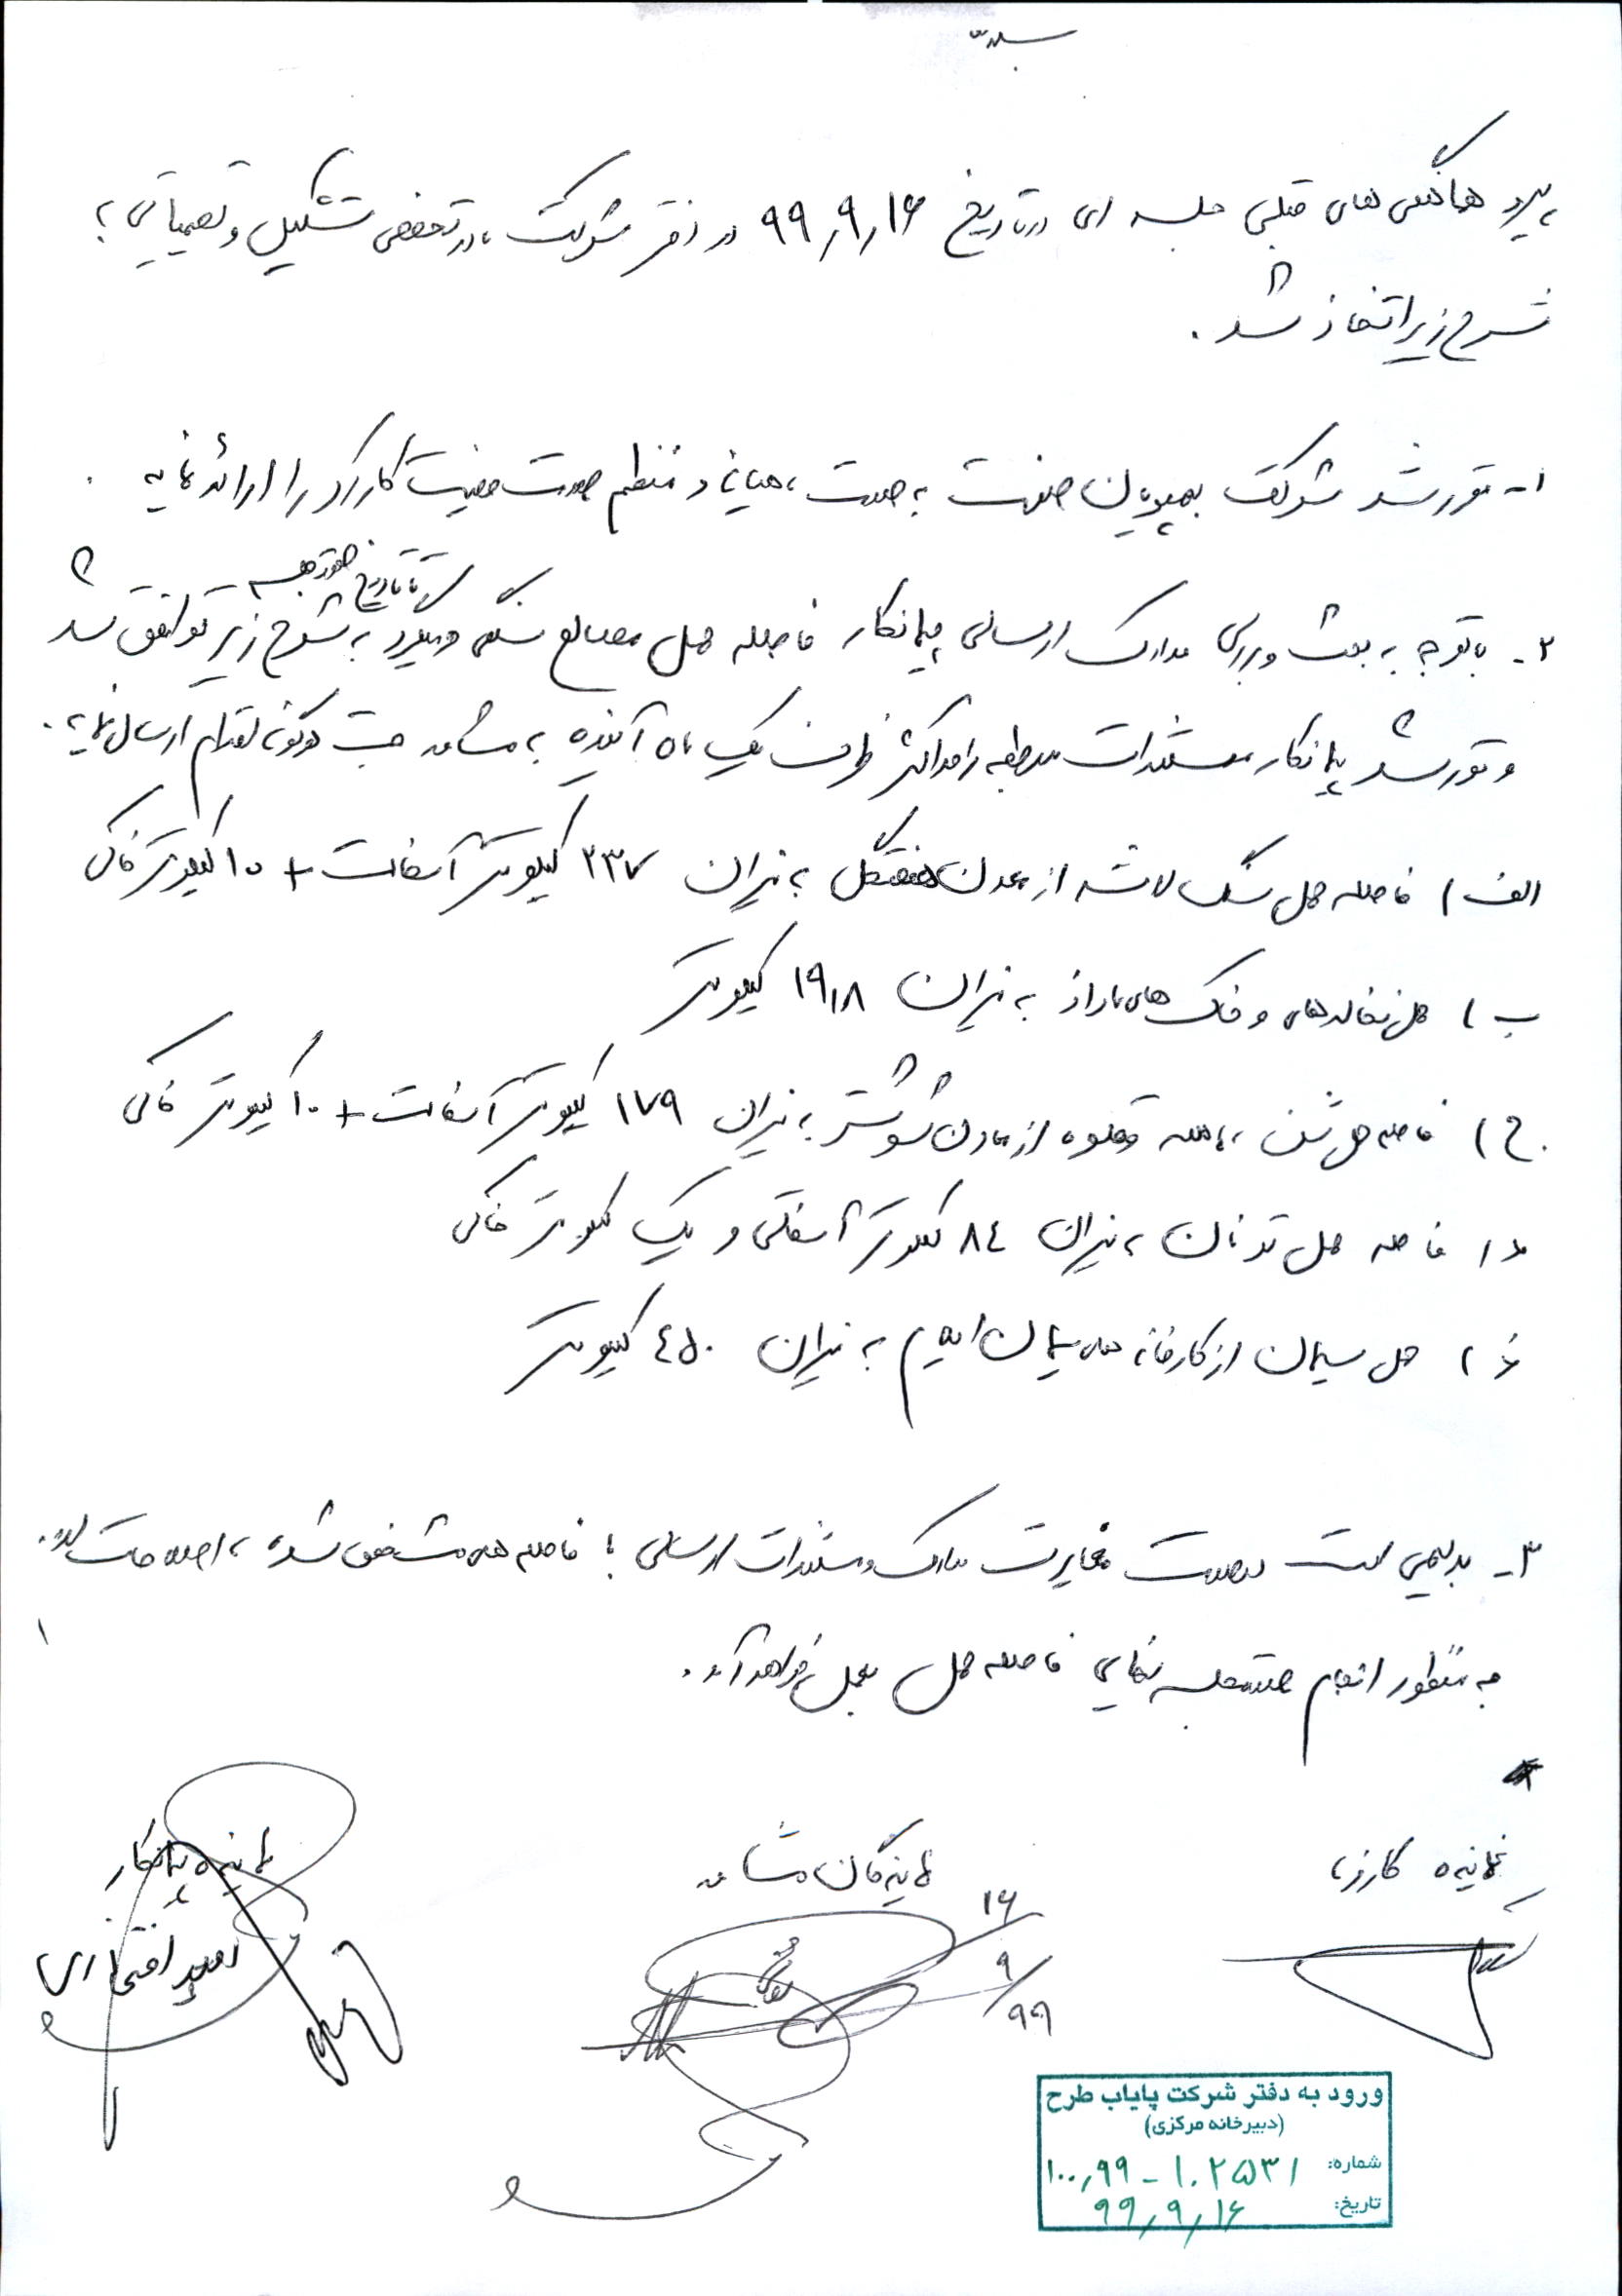 بسمه تعالی
پیرو هماهنگی های قبلی جلسه ای در تاریخ ۹۹٫۹٫۱۶ در دفتر شرکت تشکیل و تصمیماتی به
شرح زیر اتخاذ شد.
۱- مقرر شد شرکت بهپویان صنعت به صورت ماهیانه و منظم صورت وضعیت کارکرد را ارائه نماید.
تا تاریخ صورتجلسه
۲- با توجه به بحث و بررسی مدارک ارسالی پیمانکار فاصله حمل مصالح سنگی و غیره به شرح زیر توافق شد
و مقرر شد پیمانکار مستندات مربوطه را حداکثر ظرف یک ماه آینده به مشاور جهت هرگونه اقدام ارسال نماید.
الف) فاصله حمل سنگ لاشه از معدن هفتگل به میزان ۲۳۷ کیلومتر آسفالت + ۱۰ کیلومتر خاکی
ب) حمل نخاله های و خاک های مازاد به میزان ۱۹٫۸ کیلومتر
ج) فاصله حمل شن، ماسه و قلوه از معادن شوشتر به میزان ۱۷۹ کیلومتر آسفالت + ۱۰ کیلومتر خاکی
د) فاصله حمل تونان به میزان ۸٤ کیلومتر آسفالتی و یک کیلومتر خاکی
حمل سیمان از کارخانه های سیمان به میزان ٤۵۰ کیلومتر
۳- بدیهی است در صورت مغایرت مدارک و مستندات ارسالی با فاصله های مشخص شده، اصلاحات لازم
به منظور انجام صورتجلسه نهایی فاصله حمل بعمل خواهد آمد.
نماینده کارفرما
نمایندگان مشاور
نماینده پیمانکار
امید افتخاری
۱۶/۹/۹۹
ورود به دفتر شرکت پایاب طرح
(دبیرخانه مرکزی)
شماره: ۱۰۰٫۹۹ - ۱۰۲۵۳۱
تاریخ: ۹۹٫۹٫۱۶